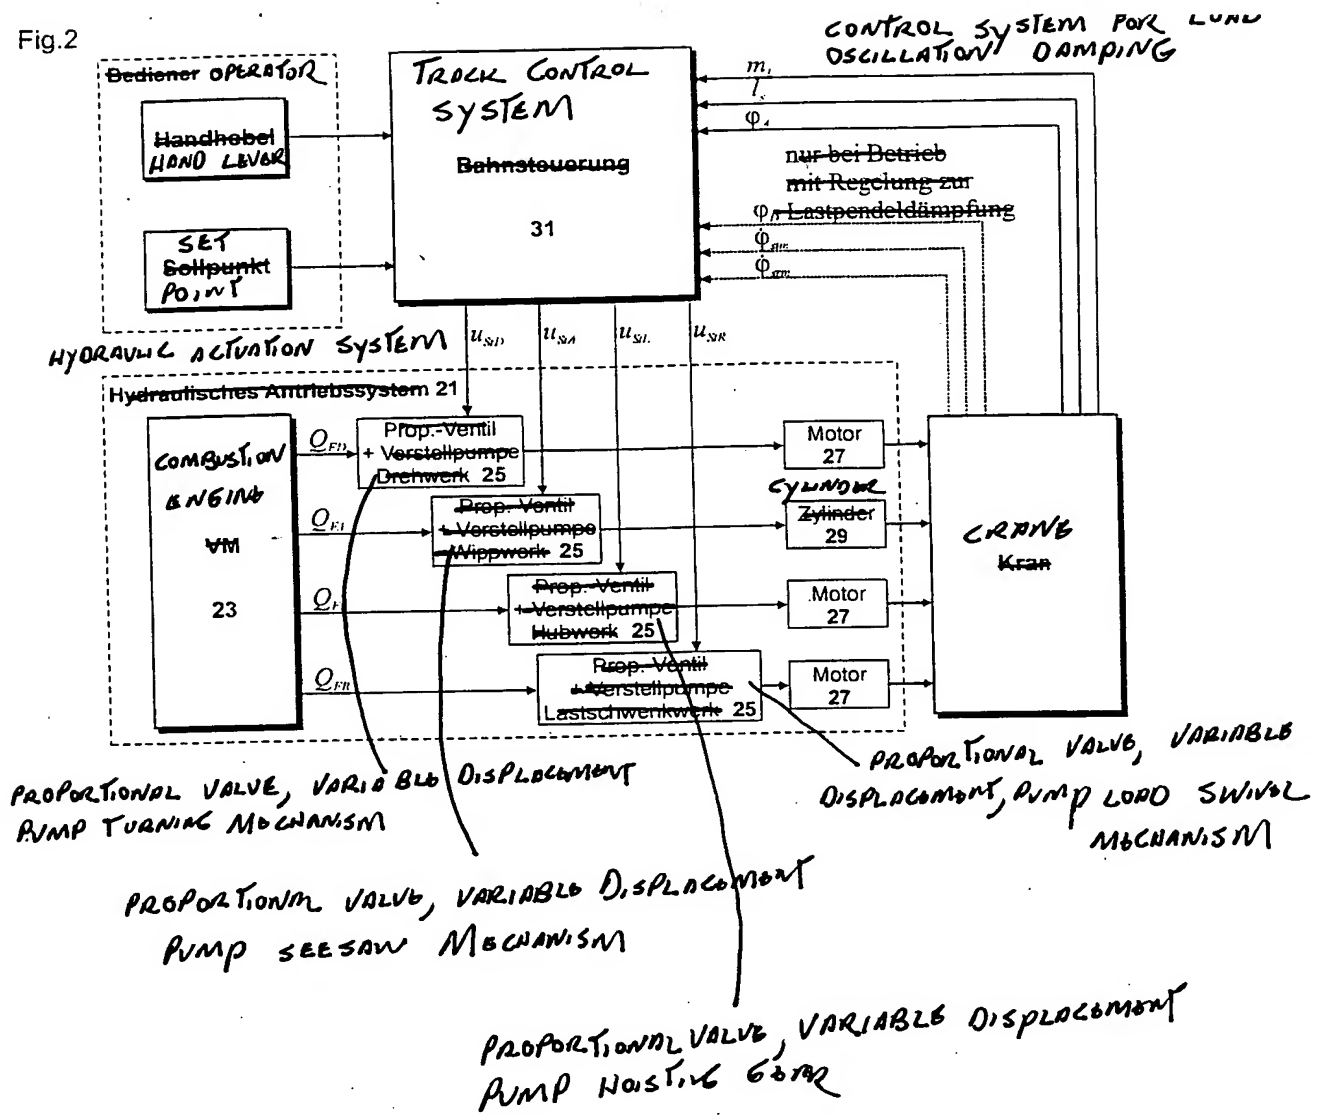 Fig.2
CONTROL SYSTEM FOR LOAD
OSCILLATION DAMPING
Bediener OPERATOR
Handhebel
HAND LEVER
SET
Sollpunkt
POINT
TRACK CONTROL
SYSTEM
Bahnsteuerung
31
m
l
φ
nur bei Betrieb
mit Regelung zur
Lastpendeldämpfung
φ
φ̇
φ̇
u_StD
u_StA
u_StL
u_StR
HYDRAULIC ACTUATION SYSTEM
Hydraulisches Antriebssystem 21
COMBUSTION
ENGINE
VM
23
Q_FD
Q
Q
Q_FR
Prop.-Ventil
+ Verstellpumpe
Drehwerk 25
Prop.-Ventil
+ Verstellpumpe
Wippwerk 25
Prop.-Ventil
+ Verstellpumpe
Hubwerk 25
Prop.-Ventil
+ Verstellpumpe
Lastschwenkwerk 25
Motor
27
CYLINDER
Zylinder
29
Motor
27
Motor
27
CRANE
Kran
PROPORTIONAL VALVE, VARIABLE DISPLACEMENT
PUMP TURNING MECHANISM
PROPORTIONAL VALVE, VARIABLE
DISPLACEMENT, PUMP LOAD SWIVEL
MECHANISM
PROPORTIONAL VALVE, VARIABLE DISPLACEMENT
PUMP SEESAW MECHANISM
PROPORTIONAL VALVE, VARIABLE DISPLACEMENT
PUMP HOISTING GEAR